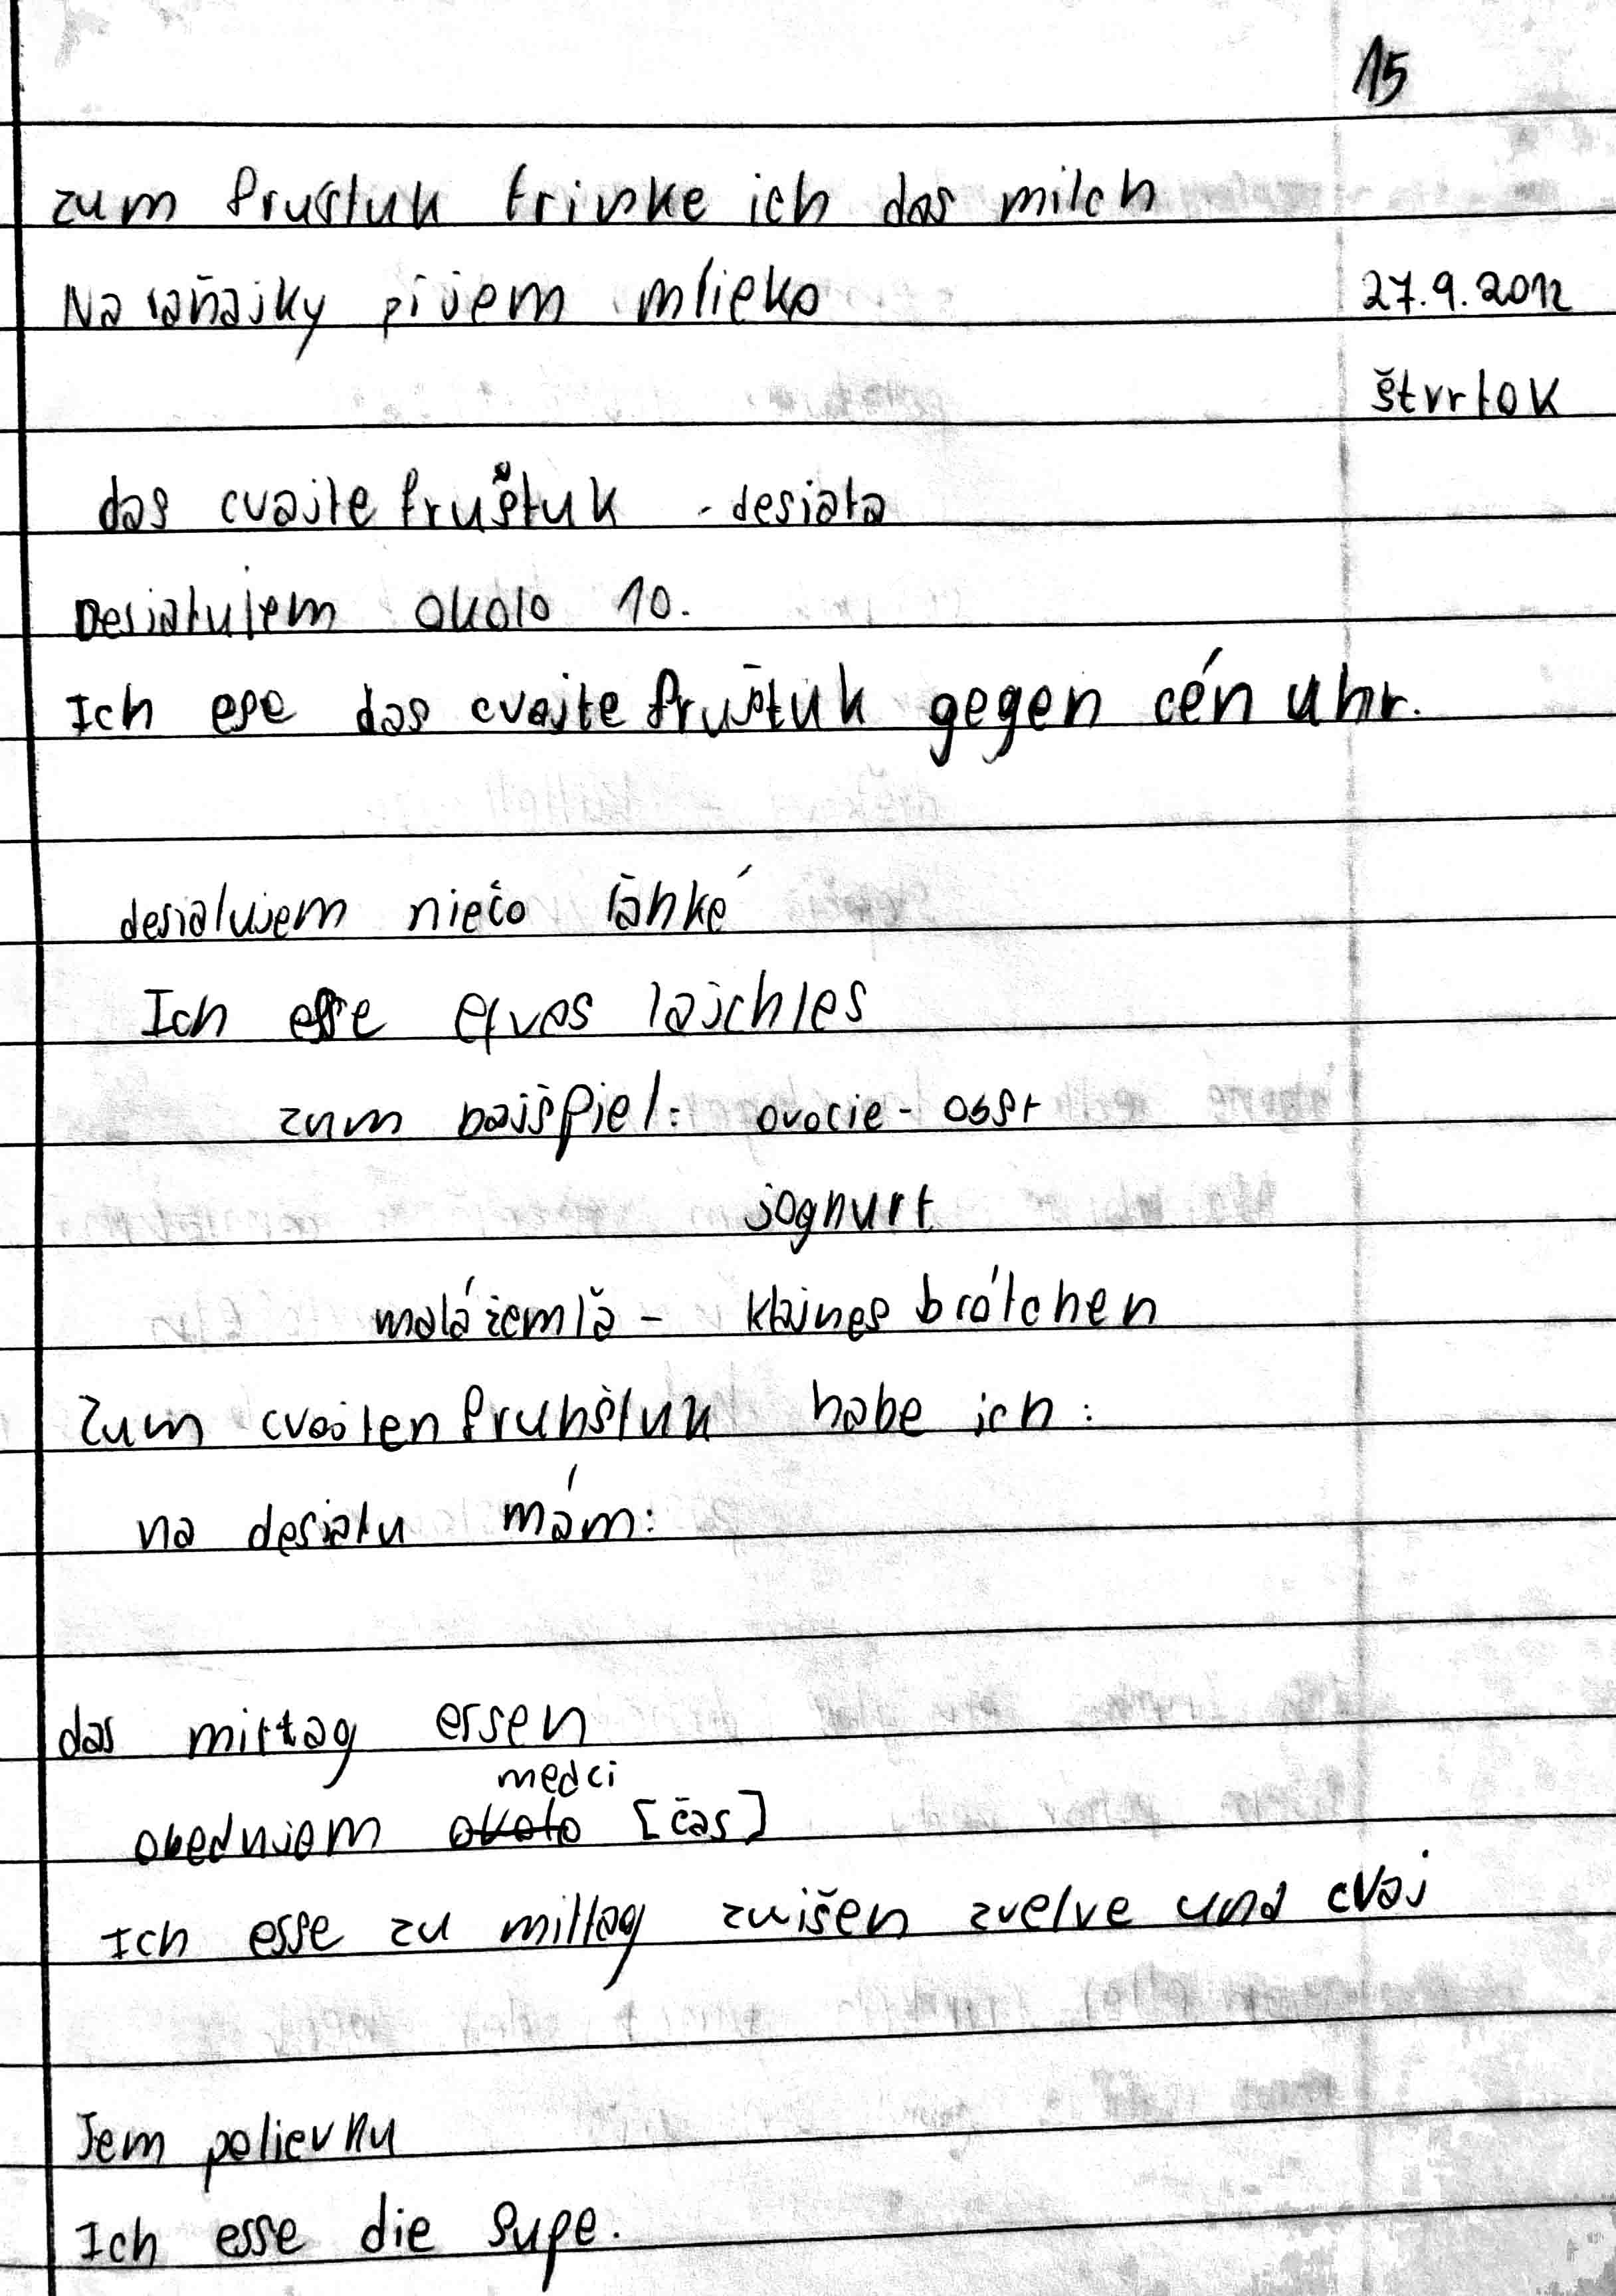 15
zum fruštuk trinke ich das milch
Na raňajky pijem mlieko
27.9.2012
štvrtok
das cvajte fruštuk - desiata
Desiatujem okolo 10.
Ich ese das cvajte fruštuk gegen cén uhr.
desiatujem niečo ľahké
Ich esse etvas lajchtes
zum bajšpiel: ovocie - obst
joghurt
malá žemľa - klajnes brótchen
Zum cvajten fruhštuk habe ich:
na desiatu mám:
das mittag essen
medzi
obedujem okolo [čas]
Ich esse zu mittag zwišen zvelve und cvaj
Jem polievku
Ich esse die supe.